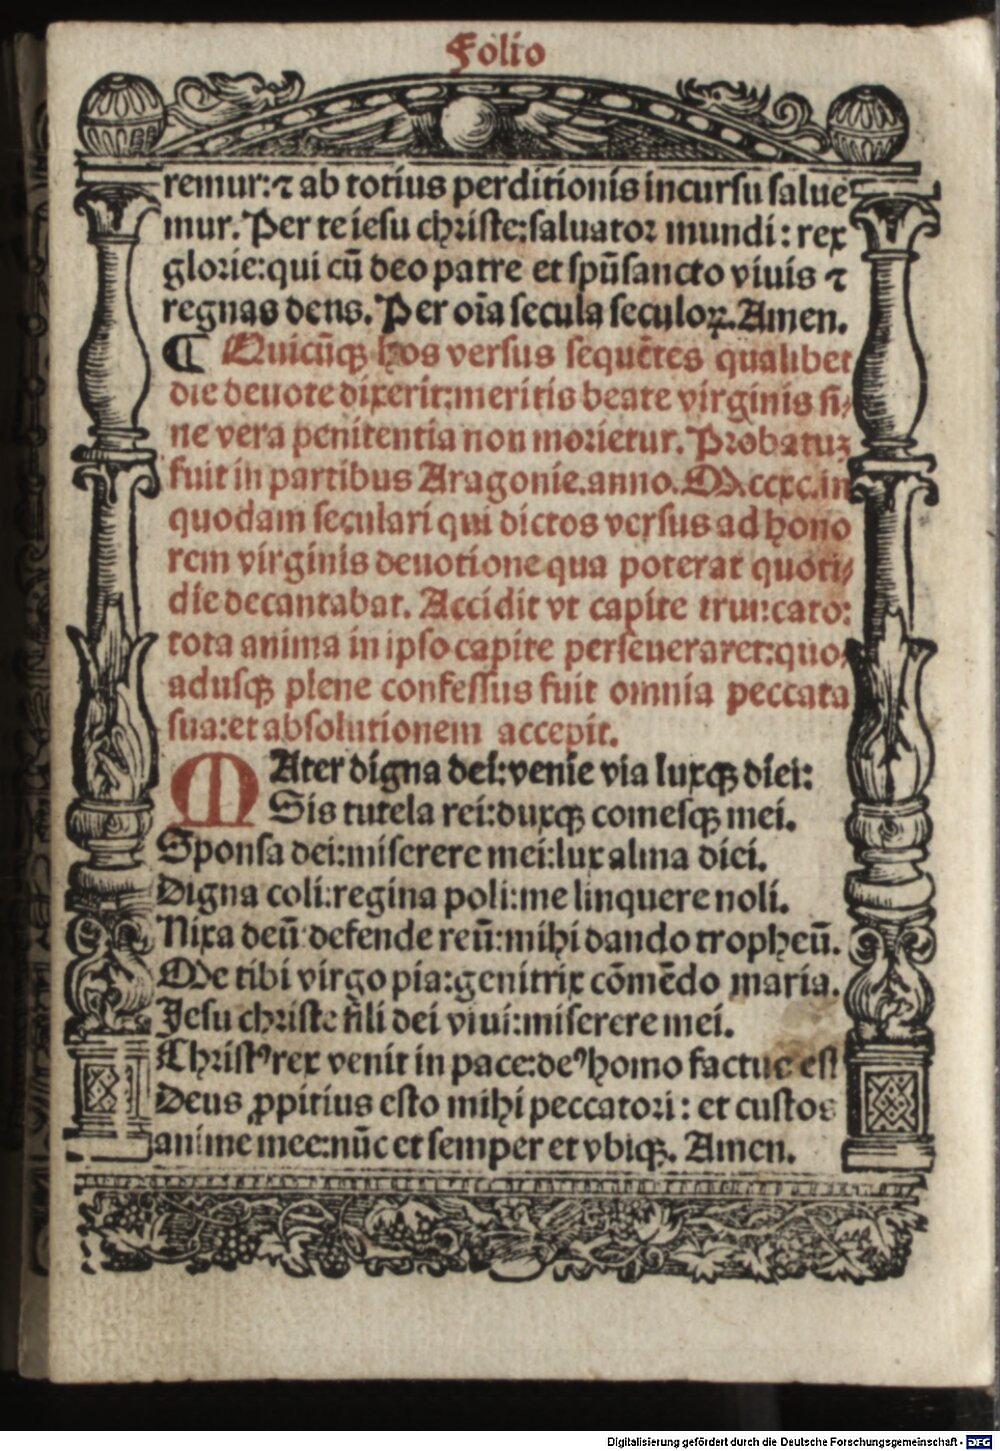 Folio
remur:⁊ ab totius perditionis incursu salue
mur. Per te iesu christe:saluator mundi: rex
glorie:qui cū deo patre et spūsancto viuis ⁊
regnas dens. Per oīa secula seculoꝝ. Amen.
¶ Quicūqꝫ hos versus sequētes qualibet
die deuote dixerit:meritis beate virginis si⸗
ne vera penitentia non morietur. Probatuꝫ
fuit in partibus Aragonie.anno.M.ccxc.in
quodam seculari qui dictos versus ad hono
rem virginis deuotione qua poterat quoti⸗
die decantabat. Accidit vt capite truncato:
tota anima in ipso capite perseueraret:quo⸗
adusqꝫ plene confessus fuit omnia peccata
sua:et absolutionem accepit.
MAter digna dei:venie via luxqꝫ diei:
Sis tutela rei:duxqꝫ comesqꝫ mei.
Sponsa dei:miserere mei:lux alma diei.
Digna coli:regina poli:me linquere noli.
Nixa deū defende reū:mihi dando tropheū.
Me tibi virgo pia:genitrix cōmēdo maria.
Jesu christe fili dei viui:miserere mei.
Christꝰ rex venit in pace:deꝰ homo factus est
Deus ꝓpitius esto mihi peccatori: et custos
anime mee:nūc et semper et vbiqꝫ. Amen.
Digitalisierung gefördert durch die Deutsche Forschungsgemeinschaft - DFG